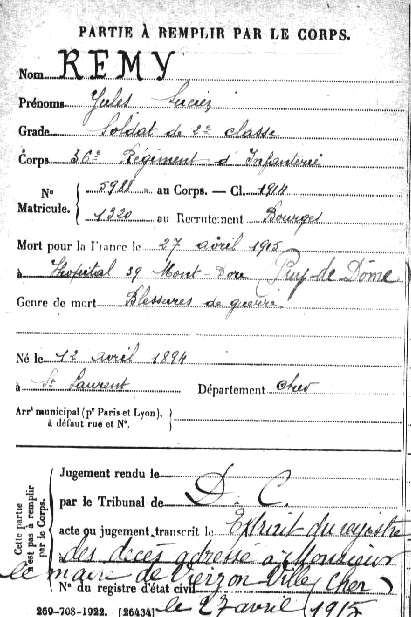 PARTIE À REMPLIR PAR LE CORPS.
Nom REMY
Prénoms Jules Lucien
Grade Soldat de 2e classe
Corps 36e Régiment d'Infanterie
No Matricule. 5921 au Corps. — Cl. 1914
1320 au Recrutement Bourges
Mort pour la France le 27 avril 1915
à Hopital 39 Mont-Dore Puy de Dôme
Genre de mort Blessures de guerre
Né le 12 avril 1894
à St Laurent Département Cher
Arrt municipal (pr Paris et Lyon),
à défaut rue et No.
Cette partie
n'est pas à remplir
par le Corps.
Jugement rendu le
par le Tribunal de D. C.
acte ou jugement transcrit le Extrait du registre
des décès adressé à Monsieur
le maire de Vierzon Ville (Cher)
No du registre d'état civil
le 27 avril 1915
269-708-1922. [26434]